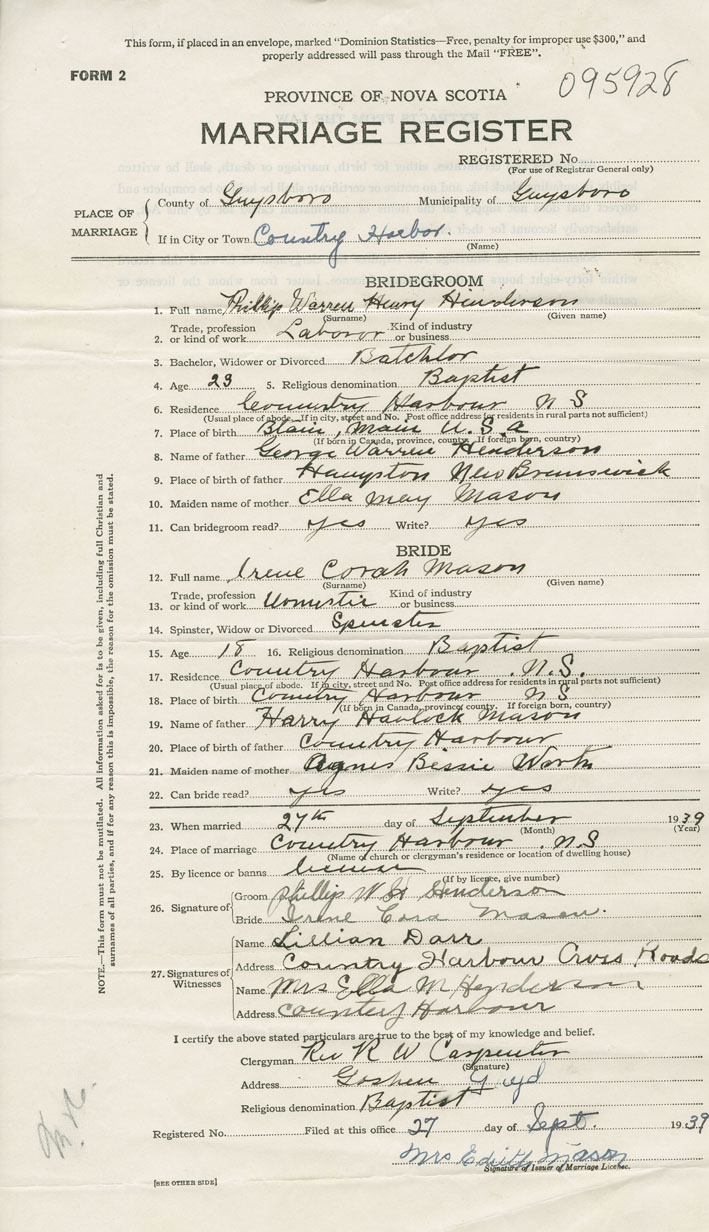 This form, if placed in an envelope, marked “Dominion Statistics—Free, penalty for improper use $300,” and
properly addressed will pass through the Mail “FREE”.
FORM 2
095928
PROVINCE OF NOVA SCOTIA
MARRIAGE REGISTER
REGISTERED No.
(For use of Registrar General only)
PLACE OF MARRIAGE
County of Guysboro Municipality of Guysboro
If in City or Town Country Harbor.
(Name)
BRIDEGROOM
1. Full name Phillip Warren Henry Henderson
(Surname) (Given name)
2. Trade, profession or kind of work Laboror Kind of industry or business
3. Bachelor, Widower or Divorced Batchlor
4. Age 23 5. Religious denomination Baptist
6. Residence Country Harbour N S
(Usual place of abode. If in city, street and No. Post office address for residents in rural parts not sufficient)
7. Place of birth Blain, Main U.S.a
(If born in Canada, province, county. If foreign born, country)
8. Name of father George Warren Henderson
9. Place of birth of father Hampton New Brunswick
10. Maiden name of mother Ella may Mason
11. Can bridegroom read? yes Write? yes
BRIDE
12. Full name Irene Corah Mason
(Surname) (Given name)
13. Trade, profession or kind of work Kind of industry or business
14. Spinster, Widow or Divorced Spinster
15. Age 18 16. Religious denomination Baptist
17. Residence Country Harbour N.S.
(Usual place of abode. If in city, street and No. Post office address for residents in rural parts not sufficient)
18. Place of birth Country Harbour N S
(If born in Canada, province county. If foreign born, country)
19. Name of father Harry Havlock Mason
20. Place of birth of father Country Harbour
21. Maiden name of mother Agnes Bessie Worth
22. Can bride read? yes Write? yes
23. When married 27th day of September 1939
(Month) (Year)
24. Place of marriage Country Harbour N S
(Name of church or clergyman's residence or location of dwelling house)
25. By licence or banns license
(If by licence, give number)
26. Signature of
Groom Phillip W H Henderson
Bride Irene Cora Mason.
27. Signatures of Witnesses
Name Lillian Darr
Address Country Harbour Cross Roads
Name Mrs Ella M Henderson
Address Country Harbour
I certify the above stated particulars are true to the best of my knowledge and belief.
Clergyman Rev R W Carpenter
(Signature)
Address Goshen Guyd
Religious denomination Baptist
Registered No. Filed at this office 27 day of Sept. 1939
Mrs Edith Mason
Signature of Issuer of Marriage License.
[SEE OTHER SIDE]
NOTE.—This form must not be mutilated. All information asked for is to be given, including full Christian and
surnames of all parties, and if for any reason this is impossible, the reason for the omission must be stated.